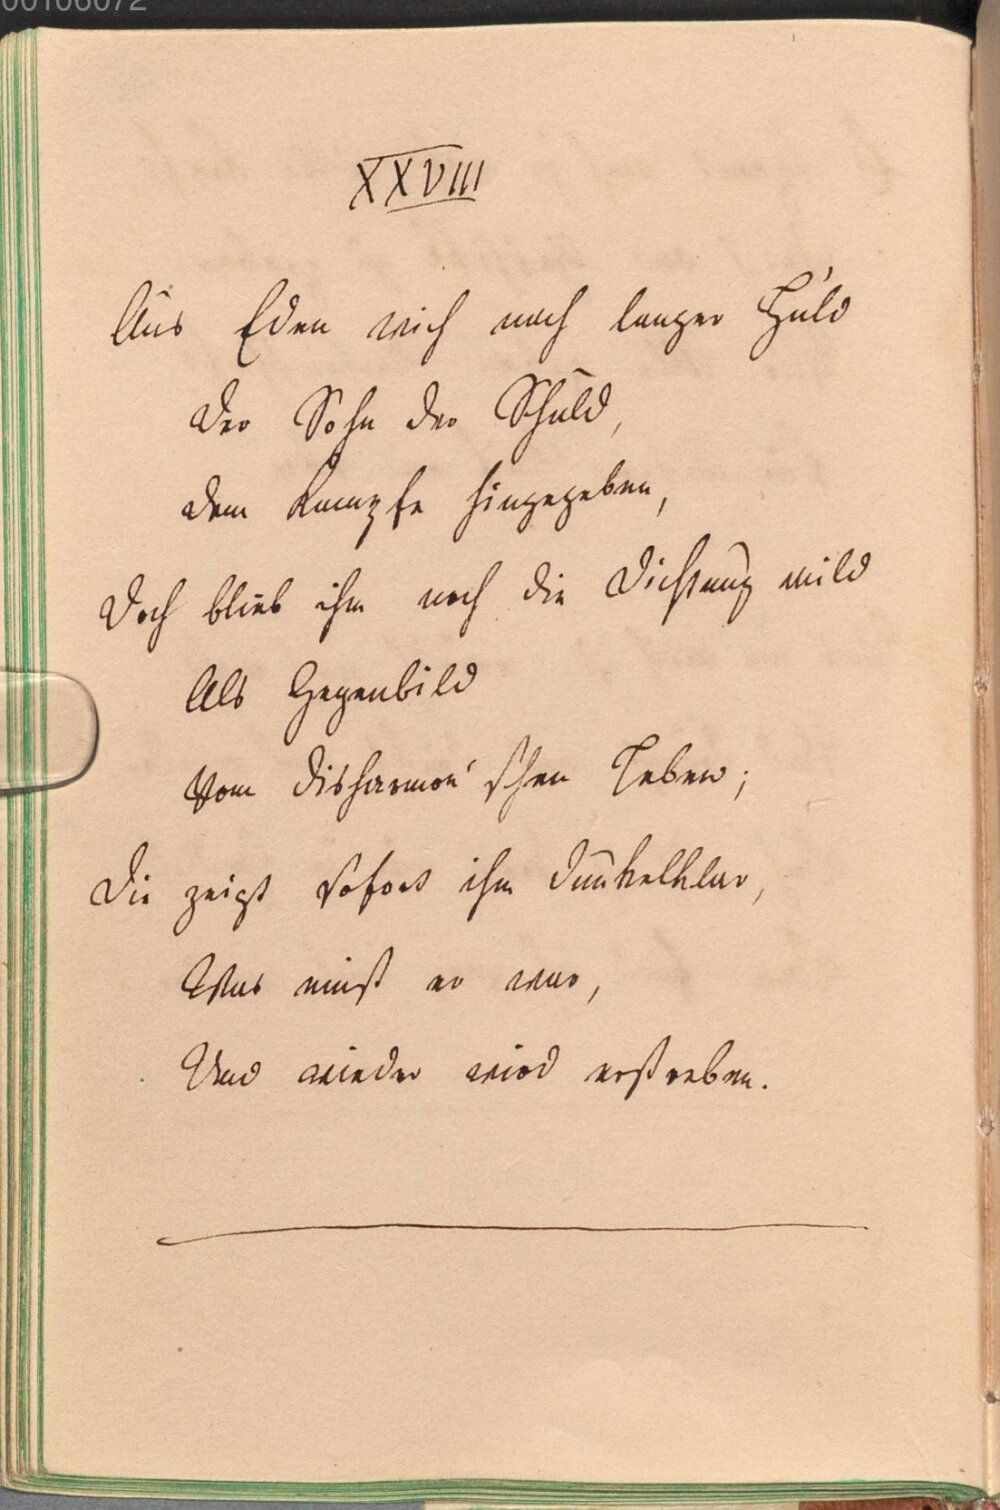 00106072
XXVIII
Aus Eden wich nach langer Huld
Der Sohn der Schuld,
Dem Kampfe hingegeben,
Doch blieb ihm noch die Dichtung mild
Als Gegenbild
Vom disharmon'schen Leben;
Die zeigt sofort ihm dunkelklar,
Was einst er war,
Und wieder wird erstreben.